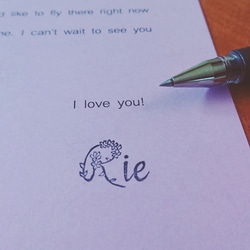 like to fly there right now
I can't wait to see you
I love you!
Rie